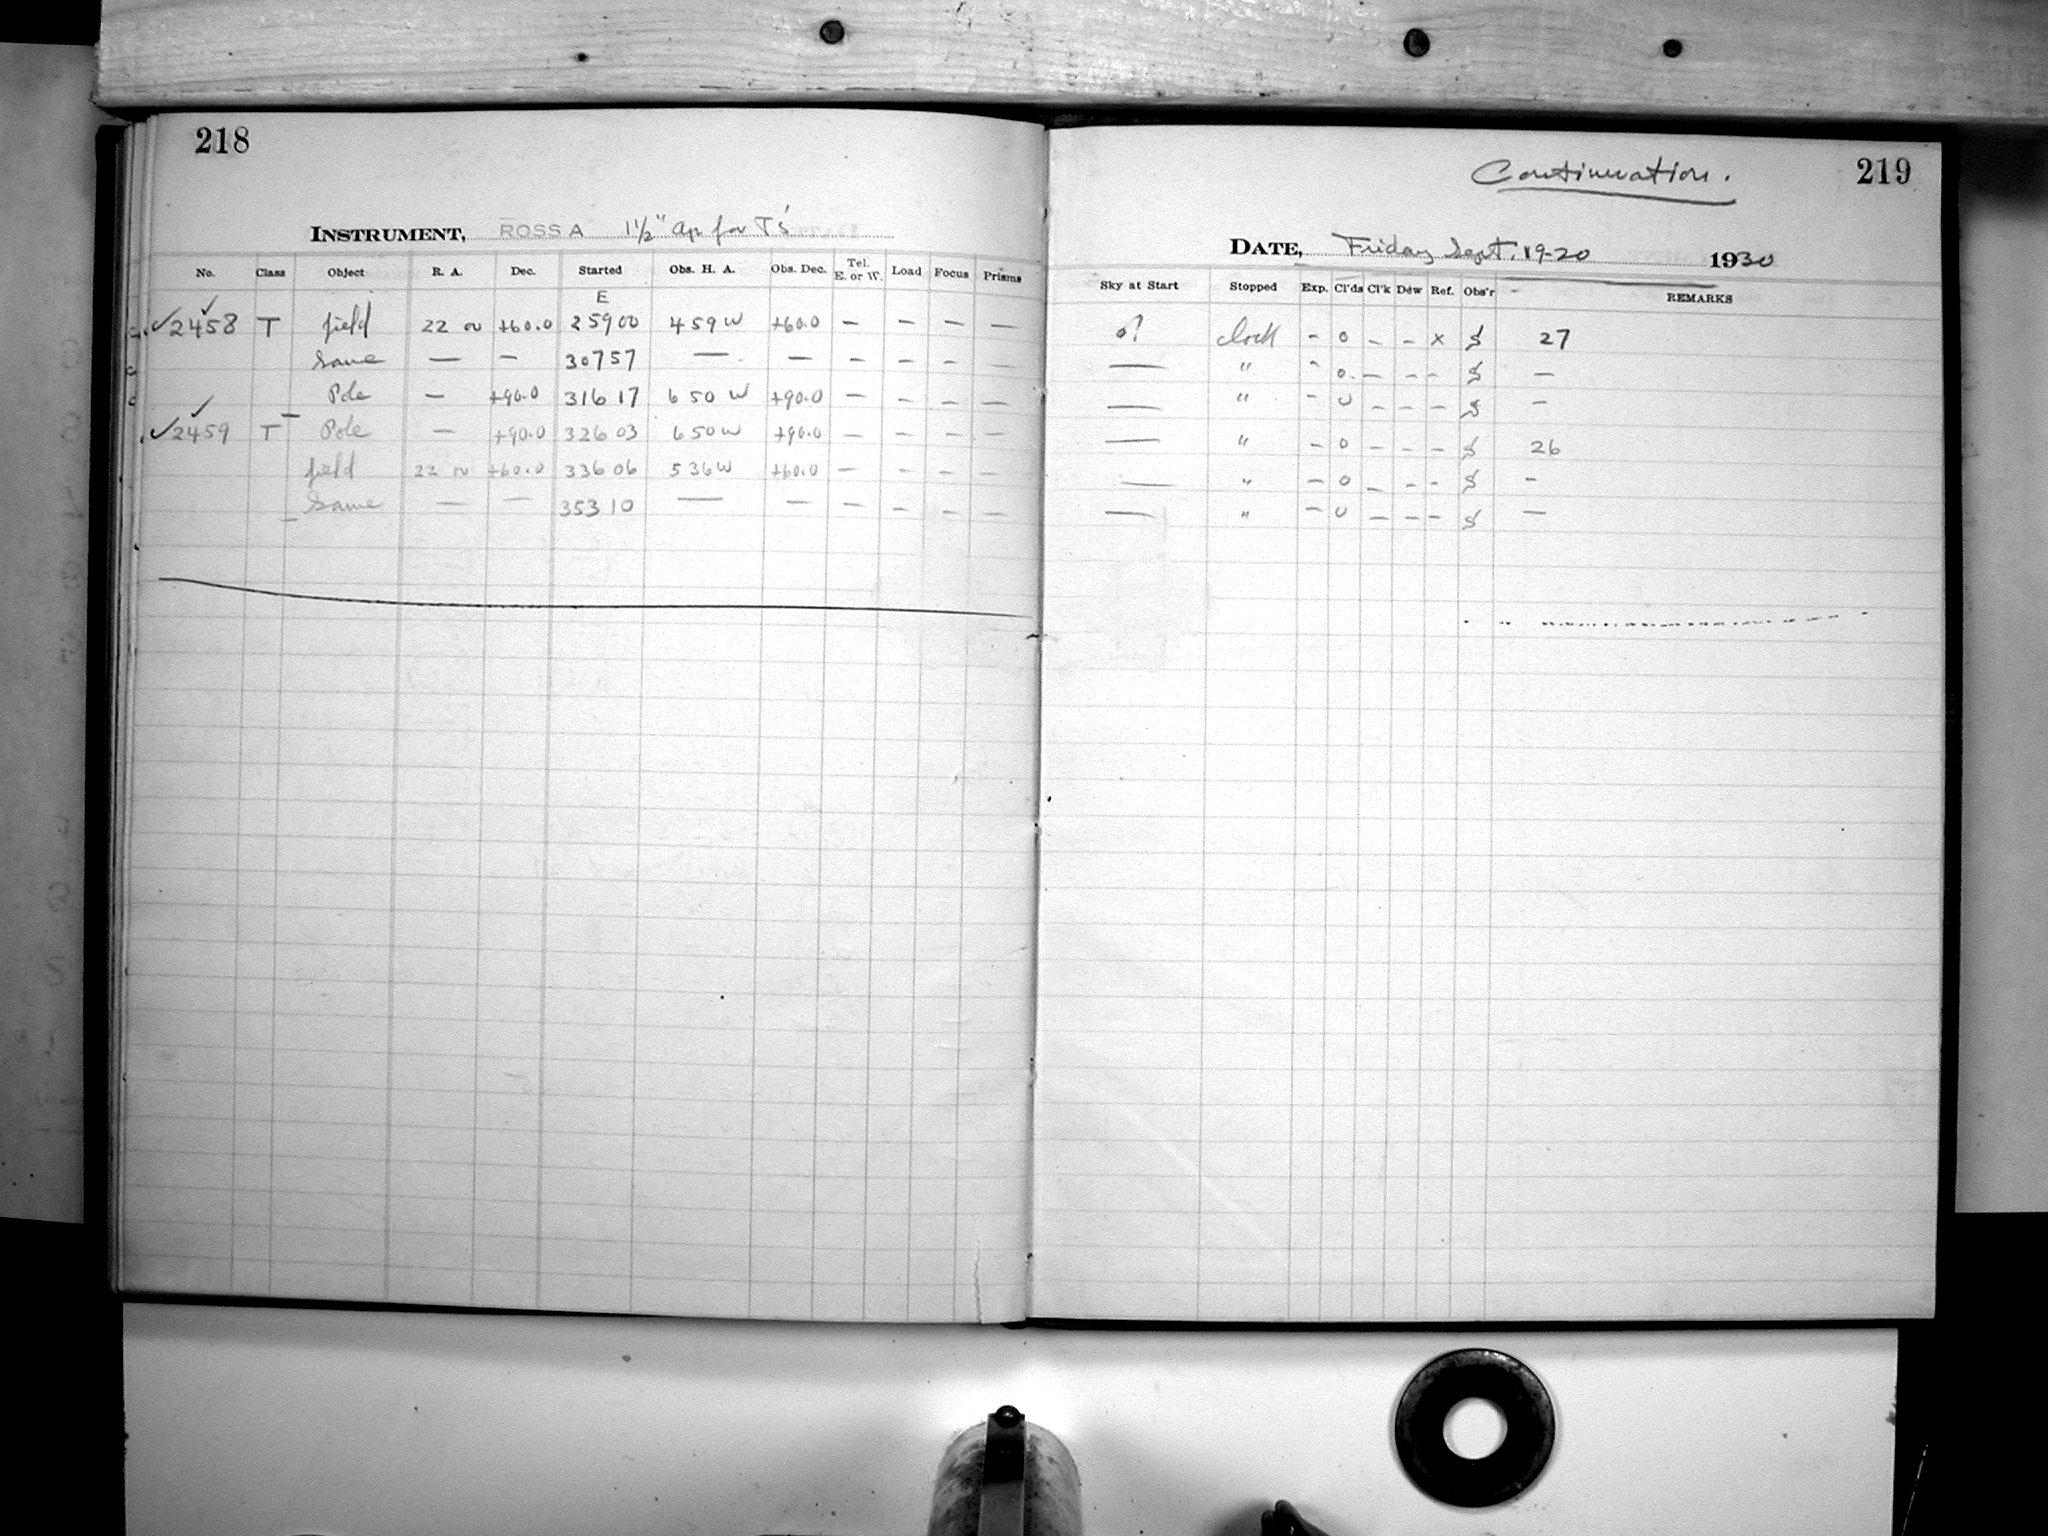 218
INSTRUMENT, ROSS A 1½" ap for T's
No. Class Object R. A. Dec. Started Obs. H. A. Obs. Dec. Tel. E. or W. Load Focus Prisms
E
✓2458 T field 22 00 +60.0 25900 459W +60.0 — — — —
Same — — 30757 — — — — — —
Pole — +90.0 31617 650 W +90.0 — — — —
✓2459 T Pole — +90.0 32603 650W +90.0 — — — —
field 22 00 +60.0 33606 536W +60.0 — — — —
Same — — 35310 — — — — — —
Continuation. 219
DATE, Friday Sept. 19-20 1930
Sky at Start Stopped Exp. Cl'ds Cl'k Dew Ref. Obs'r REMARKS
clock - 0 - - x 27
— " - 0 - - - —
— " - 0 - - - —
— " - 0 - - - 26
— " - 0 - - - -
— " - 0 - - - —